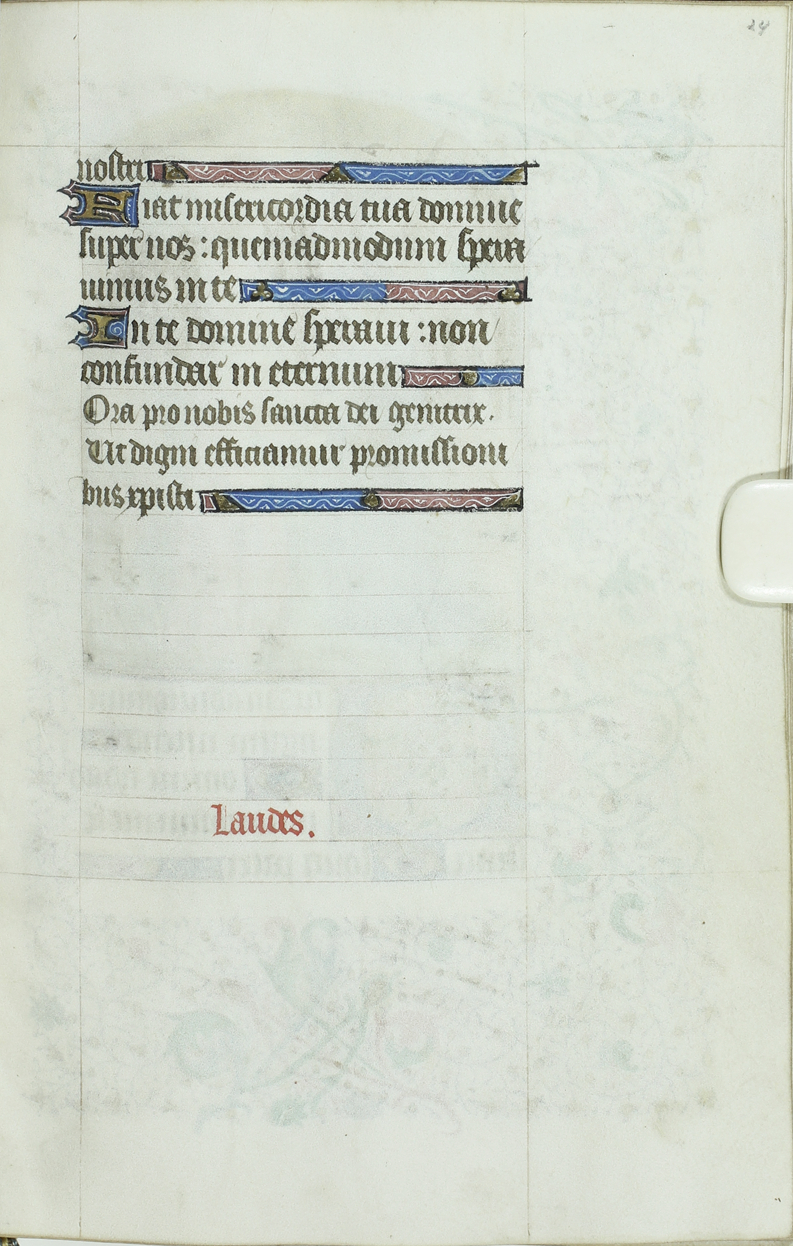 24
nostri
Fiat misericordia tua domine
super nos : quemadmodum spera
uimus in te
In te domine speraui : non
confundar in eternum
Ora pro nobis sancta dei genitrix.
Ut digni efficiamur promissioni
bus xpisti
Laudes.